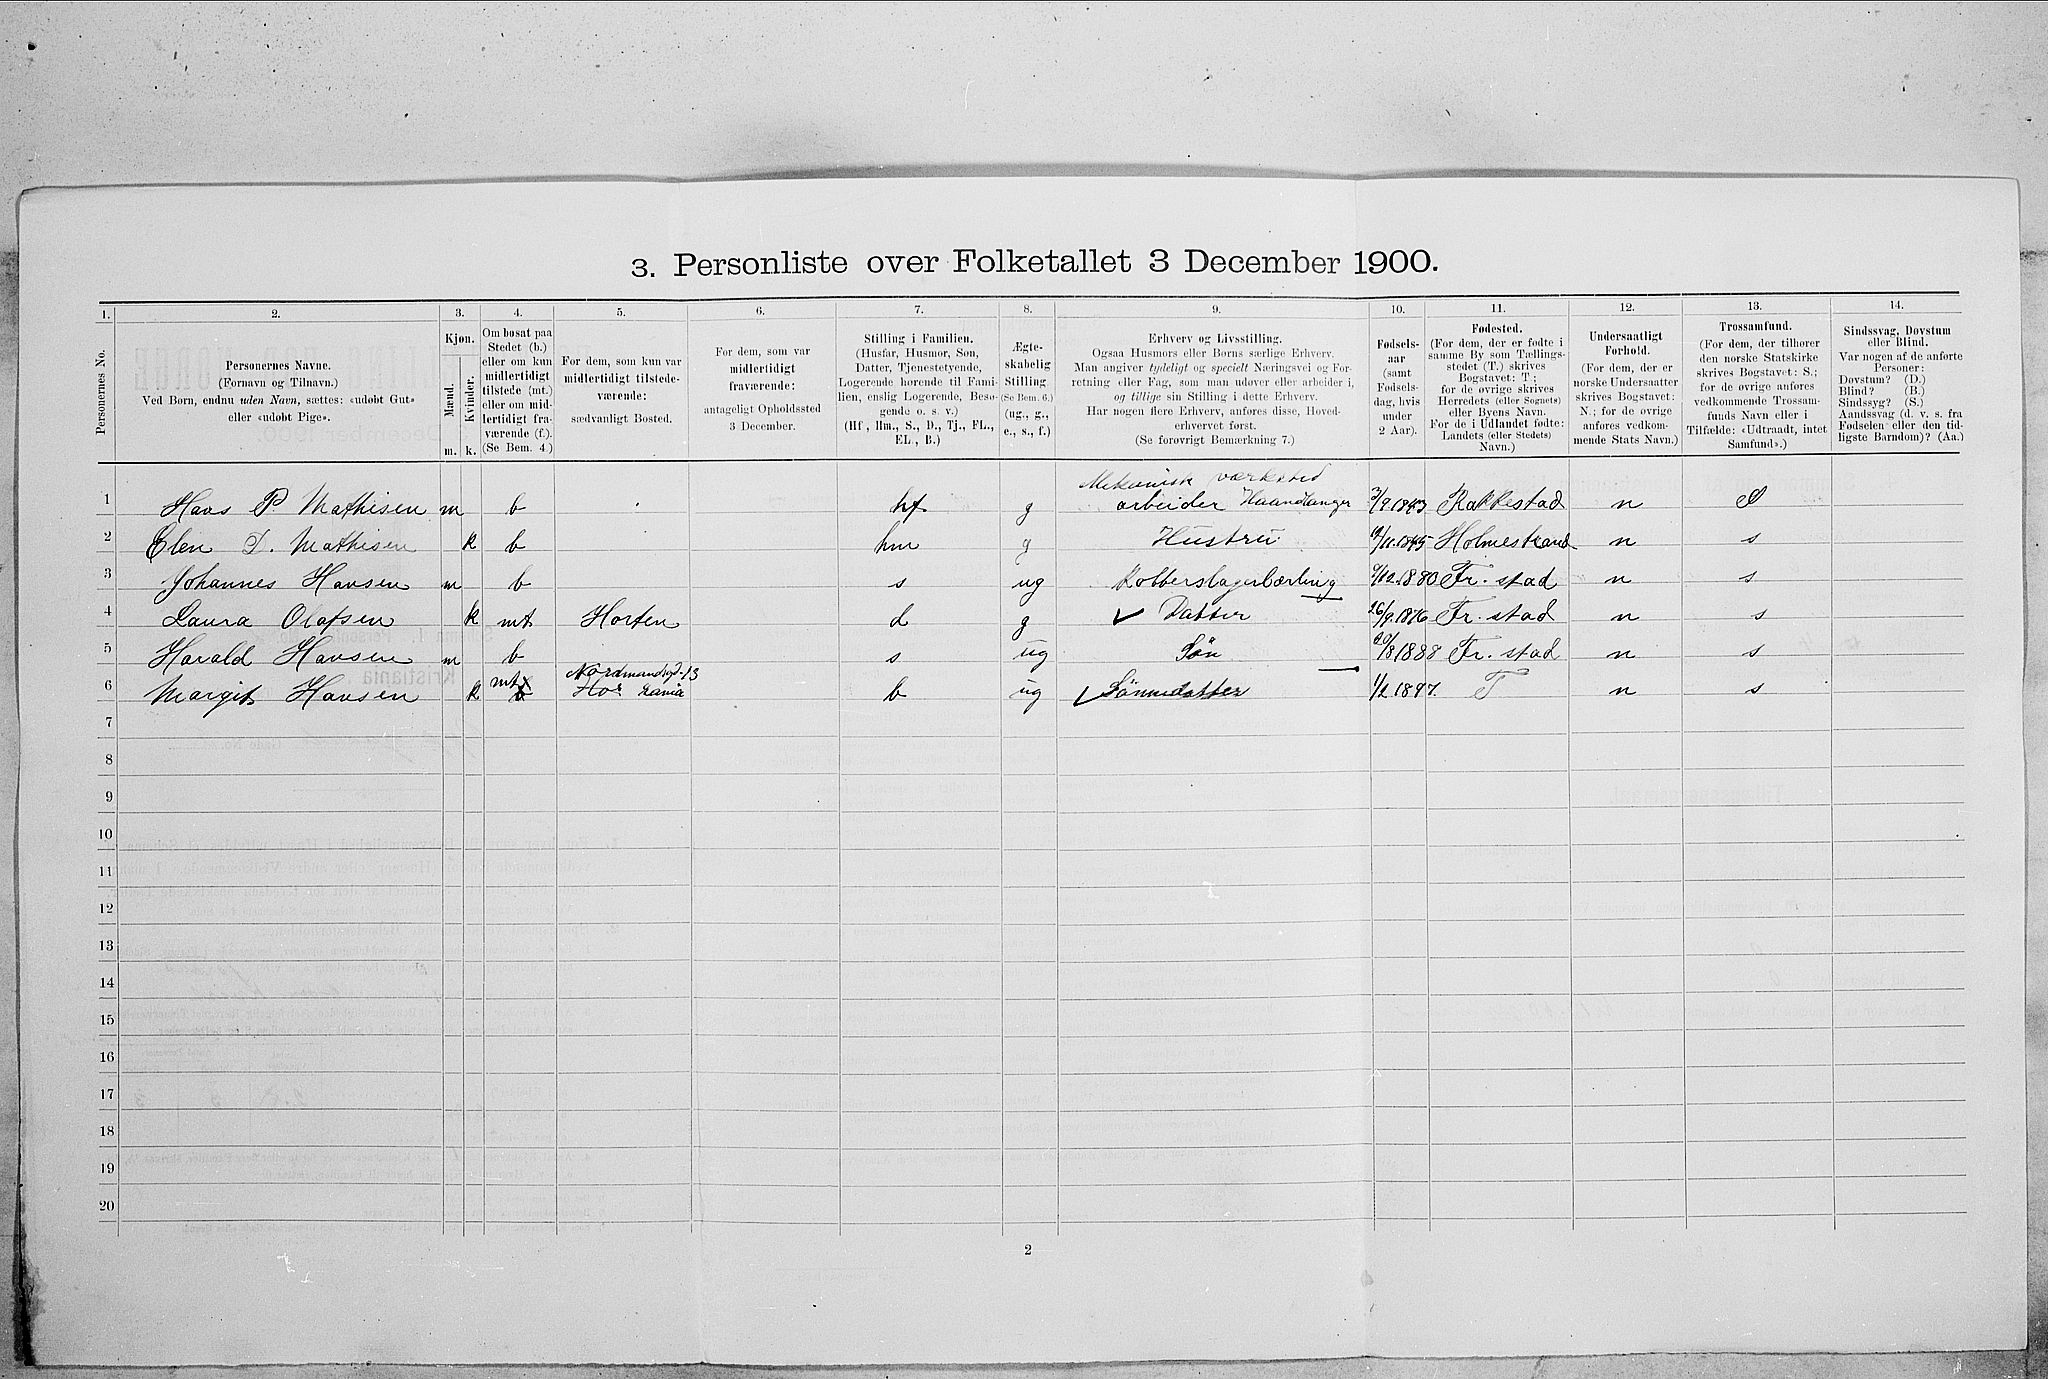 3. Personliste over Folketallet 3 December 1900.
1. 2. 3. 4. 5. 6. 7. 8. 9. 10. 11. 12. 13. 14.
Personernes No.
Personernes Navne.
(Fornavn og Tilnavn.)
Ved Børn, endnu uden Navn, sættes: «udøbt Gut»
eller «udøbt Pige».
Kjøn.
Mænd.
Kvinder.
m. k.
Om bosat paa
Stedet (b.)
eller om kun
midlertidigt
tilstede (mt.)
eller om mid-
lertidigt fra-
værende (f.).
(Se Bem. 4.)
For dem, som kun var
midlertidigt tilstede-
værende:
sædvanligt Bosted.
For dem, som var
midlertidigt
fraværende:
antageligt Opholdssted
3 December.
Stilling i Familien.
(Husfar, Husmor, Søn,
Datter, Tjenestetyende,
Logerende hørende til Fami-
lien, enslig Logerende, Besø-
gende o. s. v.)
(Hf., Hm., S., D., Tj., FL.,
EL., B.)
Ægte-
skabelig
Stilling.
(Se Bem. 6.)
(ug., g.,
e., s., f.)
Erhverv og Livsstilling.
Ogsaa Husmors eller Børns særlige Erhverv.
Man angiver tydeligt og specielt Næringsvei og For-
retning eller Fag, som man udøver eller arbeider i,
og tillige sin Stilling i dette Erhverv.
Har nogen flere Erhverv, anføres disse, Hoved-
erhvervet først.
(Se forøvrigt Bemærkning 7.)
Fødsels-
aar
(samt
Fødsels-
dag, hvis
under
2 Aar).
Fødested.
(For dem, der er fødte i
samme By som Tællings-
stedet (T.) skrives
Bogstavet: T;
for de øvrige skrives
Herredets (eller Sognets)
eller Byens Navn.
For de i Udlandet fødte:
Landets (eller Stedets)
Navn.)
Undersaatligt
Forhold.
(For dem, der er
norske Undersaatter
skrives Bogstavet:
N.; for de øvrige
anføres vedkom-
mende Stats Navn.)
Trossamfund.
(For dem, der tilhører
den norske Statskirke
skrives Bogstavet: S.;
for de øvrige anføres
vedkommende Trossam-
funds Navn eller i
Tilfælde: «Udtraadt, intet
Samfund».)
Sindssvag, Døvstum
eller Blind.
Var nogen af de anførte
Personer:
Døvstum? (D.)
Blind? (B.)
Sindssyg? (S.)
Aandssvag (d. v. s. fra
Fødselen eller den tid-
ligste Barndom)? (Aa.)
Mekanisk værksted
1 Hans P Mathisen m b hf g arbeider Haandlanger Rakkestad n S
2 Elen D. Mathisen k b hm g Hustru Holmestrand n s
3 Johannes Hansen m b s ug Kobberslagerlærling 1880 Fr. stad n s
4 Laura Olafsen k mt Horten d g Datter 26/9.1876 Fr. stad n s
5 Harald Hansen m b s ug Søn 20/8 1888 Fr. stad n s
6 Margit Hansen k mt b ug Sønnedatter 1/2.1897. T n s
7
8
9
10
11
12
13
14
15
16
17
18
19
20
2